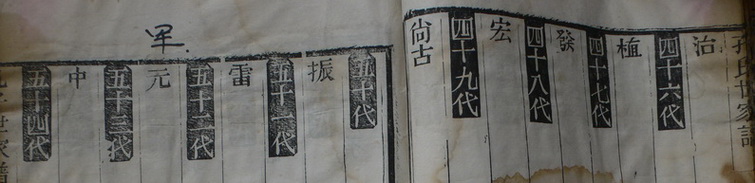 治
四十六代
植
四十七代
發
四十八代
宏
四十九代
尙古
五十代
振
五十一代
雷
五十二代
元
五十三代
中
五十四代